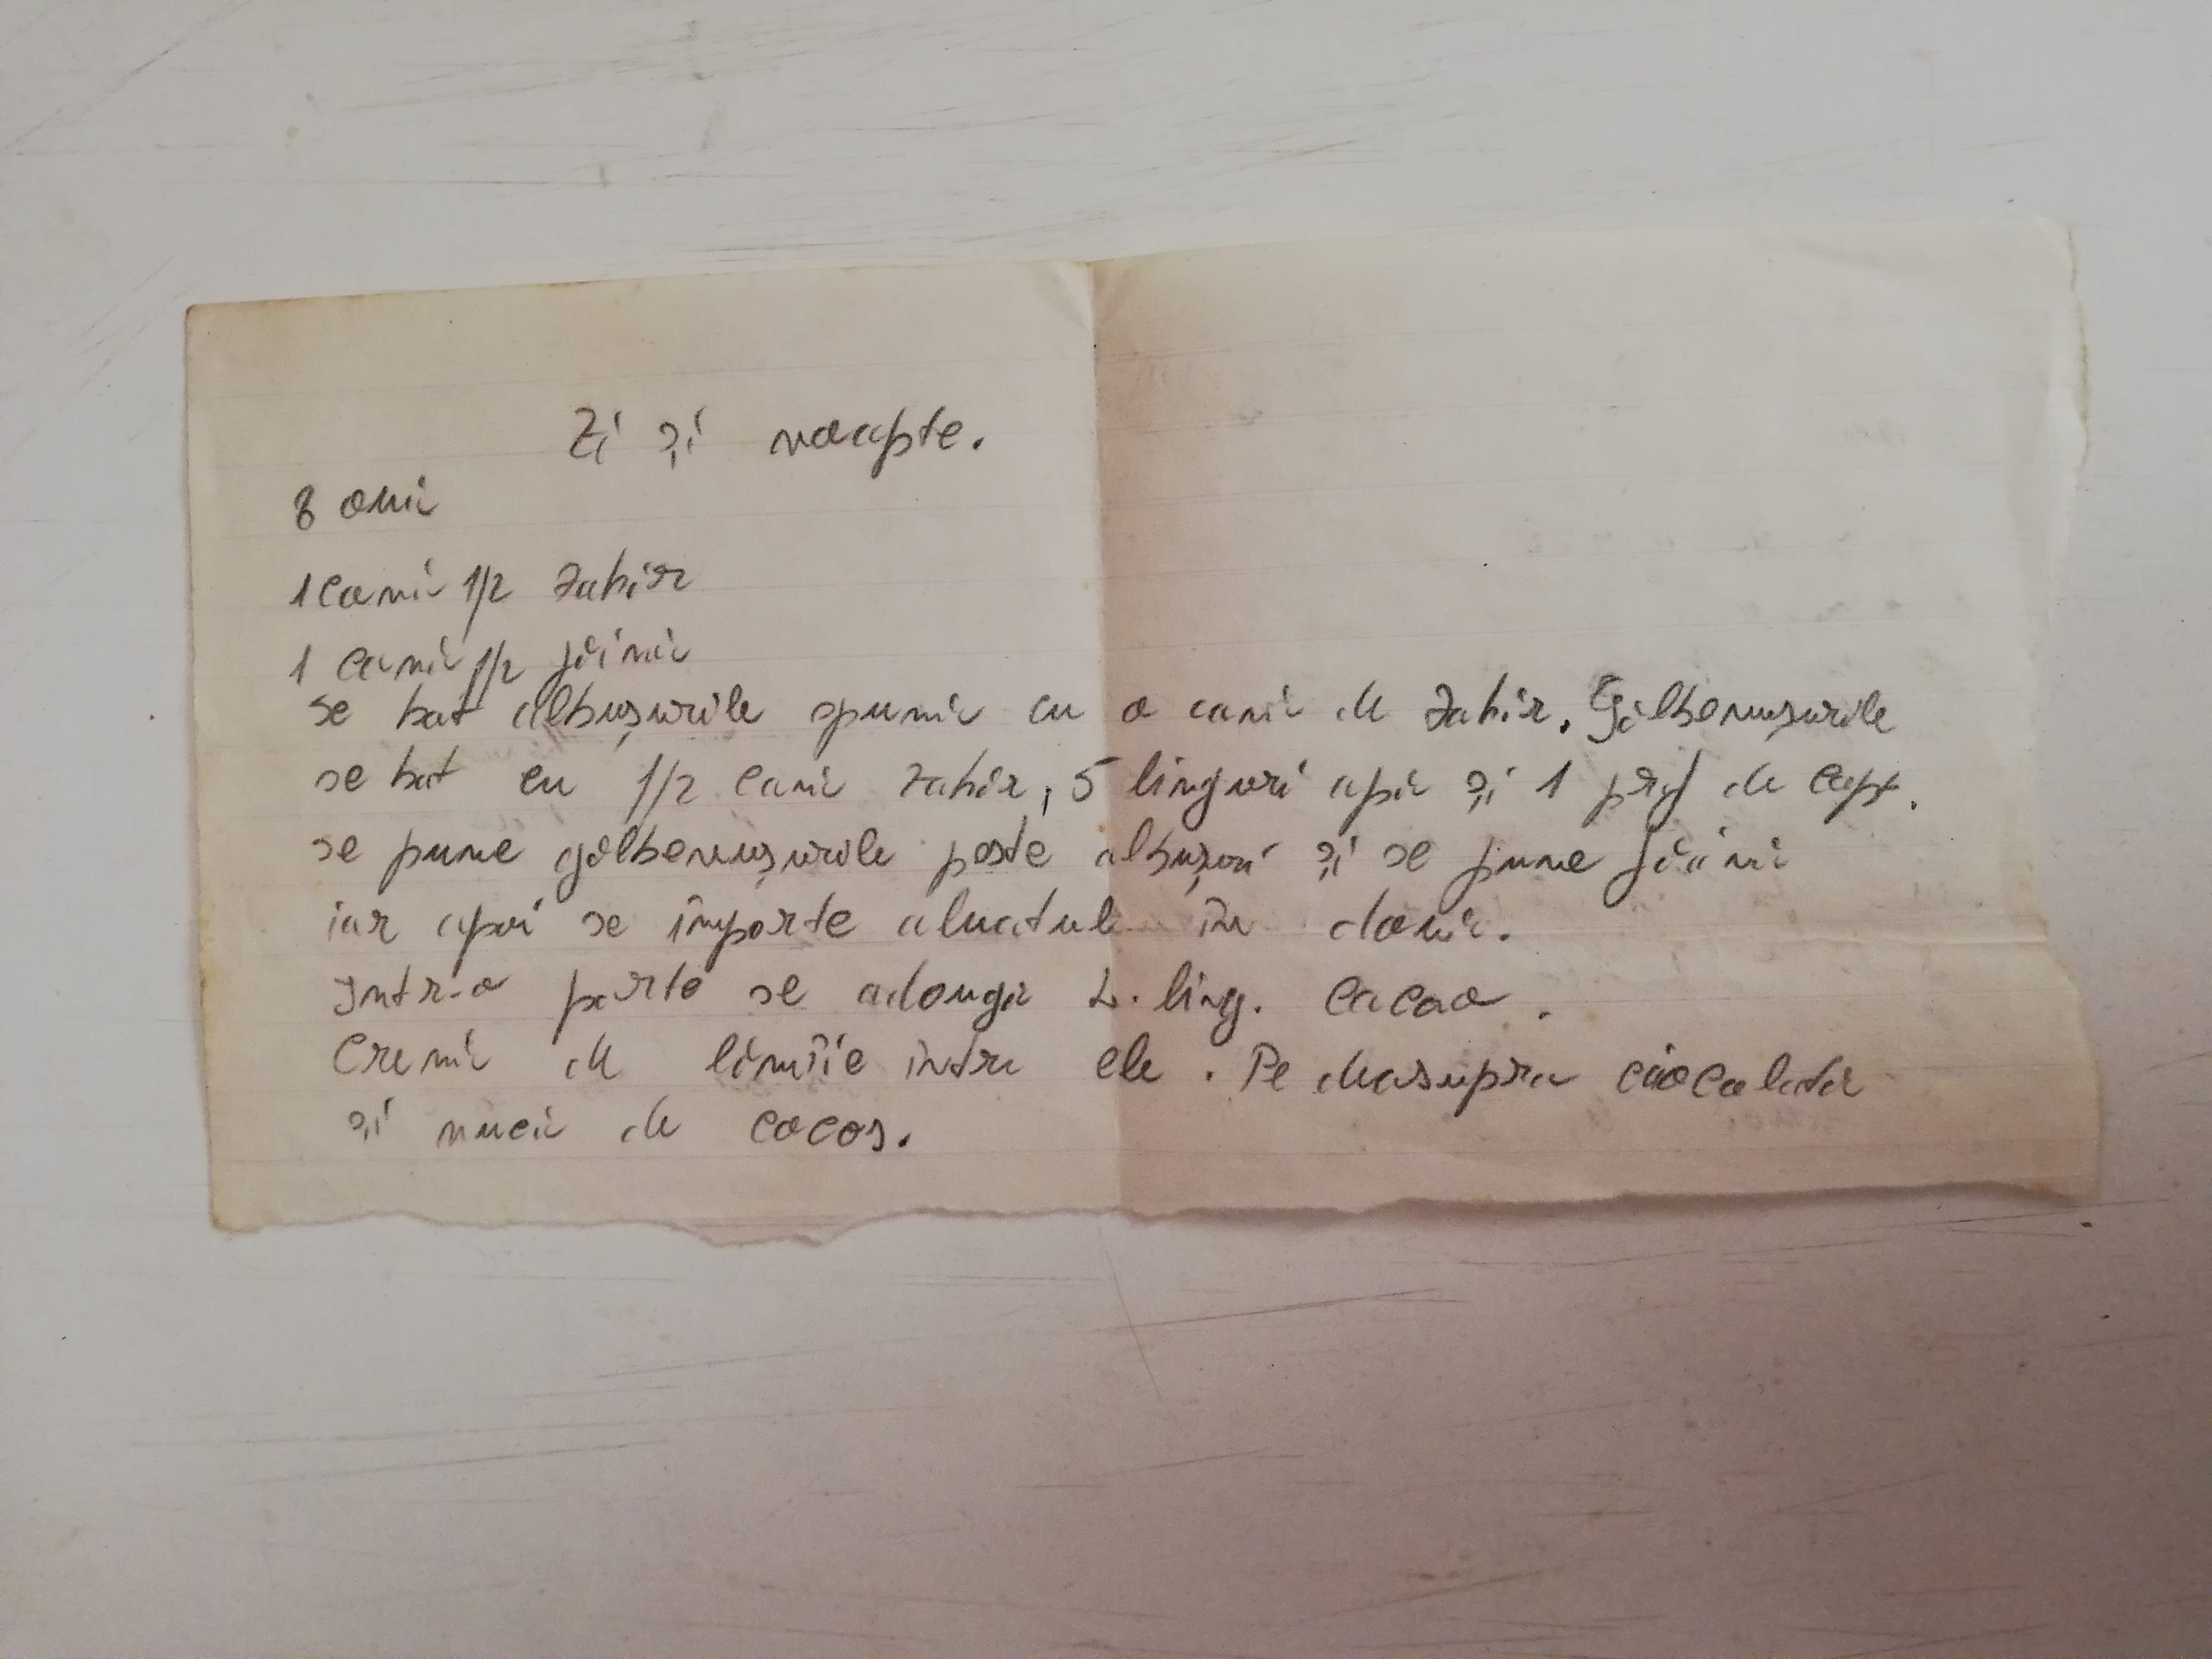 Zi și noapte.
8 ouă
1 cană 1/2 zahăr
1 cană 1/2 făină
se bat albușurile spumă cu o cană de zahăr. Gălbenușurile
se bat cu 1/2 cană zahăr, 5 linguri apă și 1 praf de copt.
se pune gălbenușurile peste albușuri și se pune făină
iar apoi se împarte aluatul în două.
Intr-o parte se adaugă 2. ling. cacao.
Cremă de lămîie între ele. Pe deasupra ciocolată
și nucă de cocos.